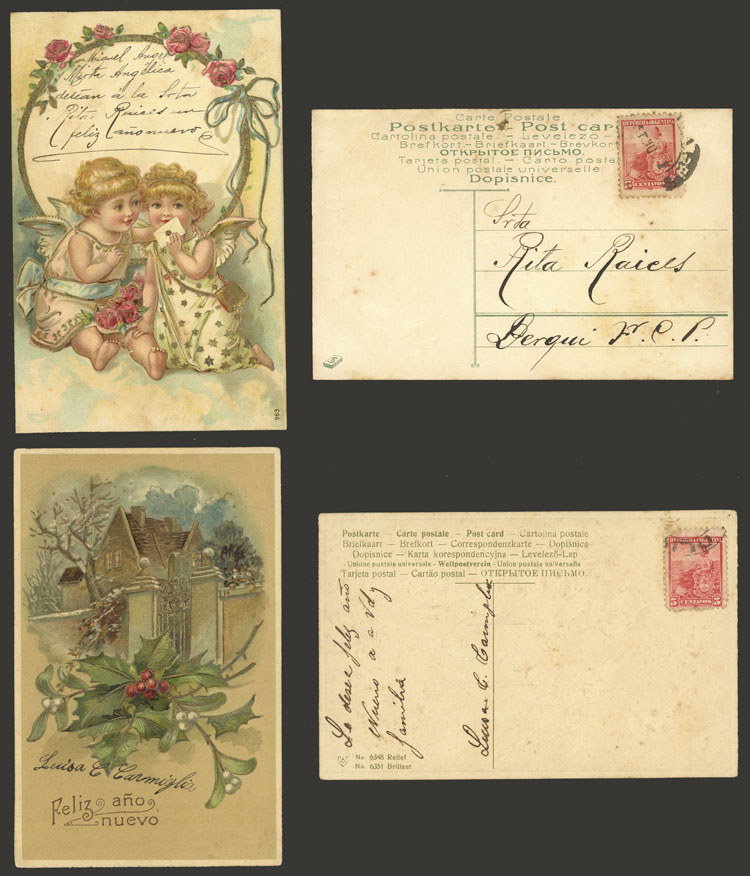 Miguel Angel
y Mirta Angélica
deséan á la Srta
Rita Raices un
feliz año nuevo
963
Carte Postale
Postkarte – Post card
Cartolina postale – Levelezo
Brefkort – Briefkaart – Brevkort
ОТКРЫТОЕ ПИСЬМО.
Tarjeta postal. – Carto postal
Union postale universelle.
Dopisnice.
REPUBLICA ARGENTINA
5 CENTAVOS
Srta
Rita Raices
Derqui F. C. P.
Luisa C. Carmiglia
Feliz año
nuevo
Postkarte – Carte postale – Post card – Cartolina postale
Briefkaart – Brefkort – Correspondenzkarte – Dopisnica
Dopisnice – Karta korespondencyjna – Levelező-Lap
Unione postale universale – Weltpostverein – Union postale universelle
Tarjeta postal – Cartão postal – ОТКРЫТОЕ ПИСЬМО.
5 CENTAVOS 5
Le desea feliz año
Nuevo a a Vd y
familia
Luisa C. Carmiglia
No. 6348 Relief
No. 6351 Brillant